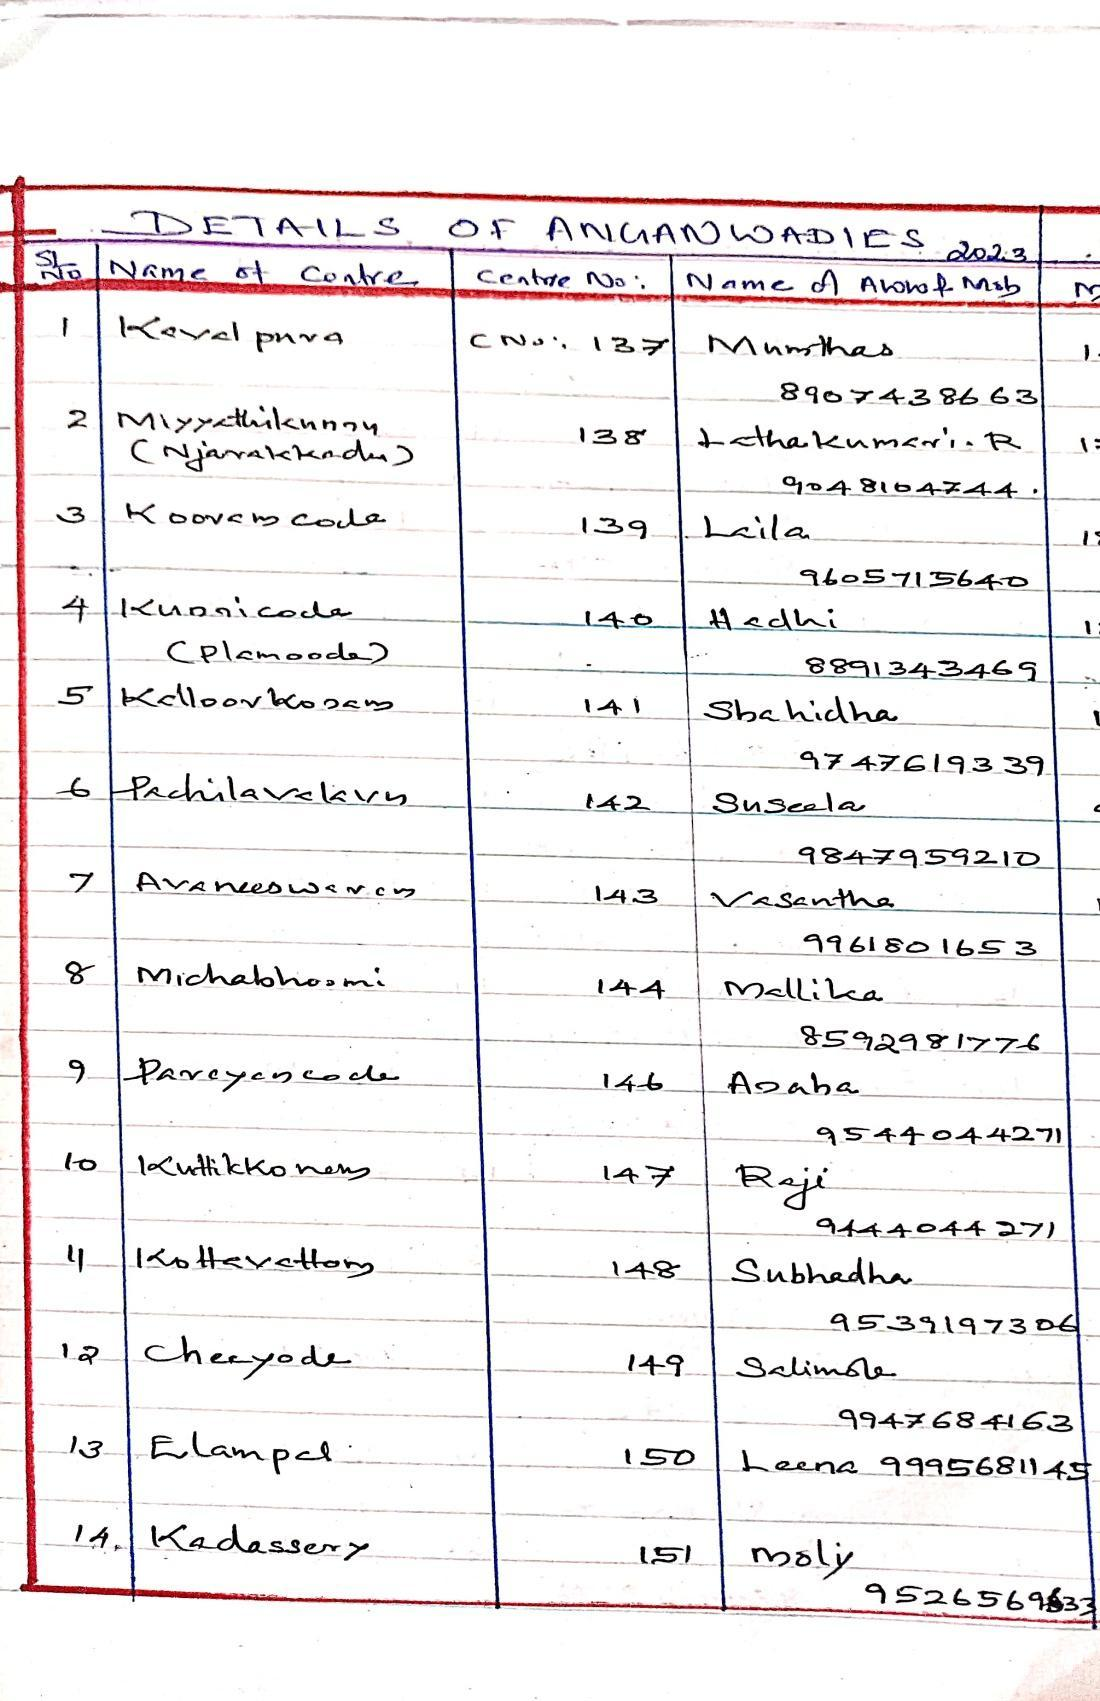 DETAILS OF ANGANWADIES 2023
Sl. No Name of Centre Centre No: Name of & Mob
1 Kavalpura C No: 137 Mumthas
8907438663
2 Miyyathikunnu 138 Lathakumari. R
(Njarakkadu)
9048104744.
3 Kooramcode 139 Laila
9605715640
4 Kunnicode 140 Hadhi
(Plamoode)
8891343469
5 Kalloorkonam 141 Shahidha
9747619339
6 Pachilavalavu 142 Suseela
9847959210
7 Avaneeswaram 143 Vasantha
9961801653
8 Michabhoomi 144 Mallika
8592981776
9 Parayancode 146 Asaba
9544044271
10 Kuttikkonam 147 Raji
9444044271
11 Kottavattom 148 Subhadha
9539197306
12 Cheeyode 149 Salimole
9947684163
13 Elampal 150 Leena 9995681145
14. Kadassery 151 Moly